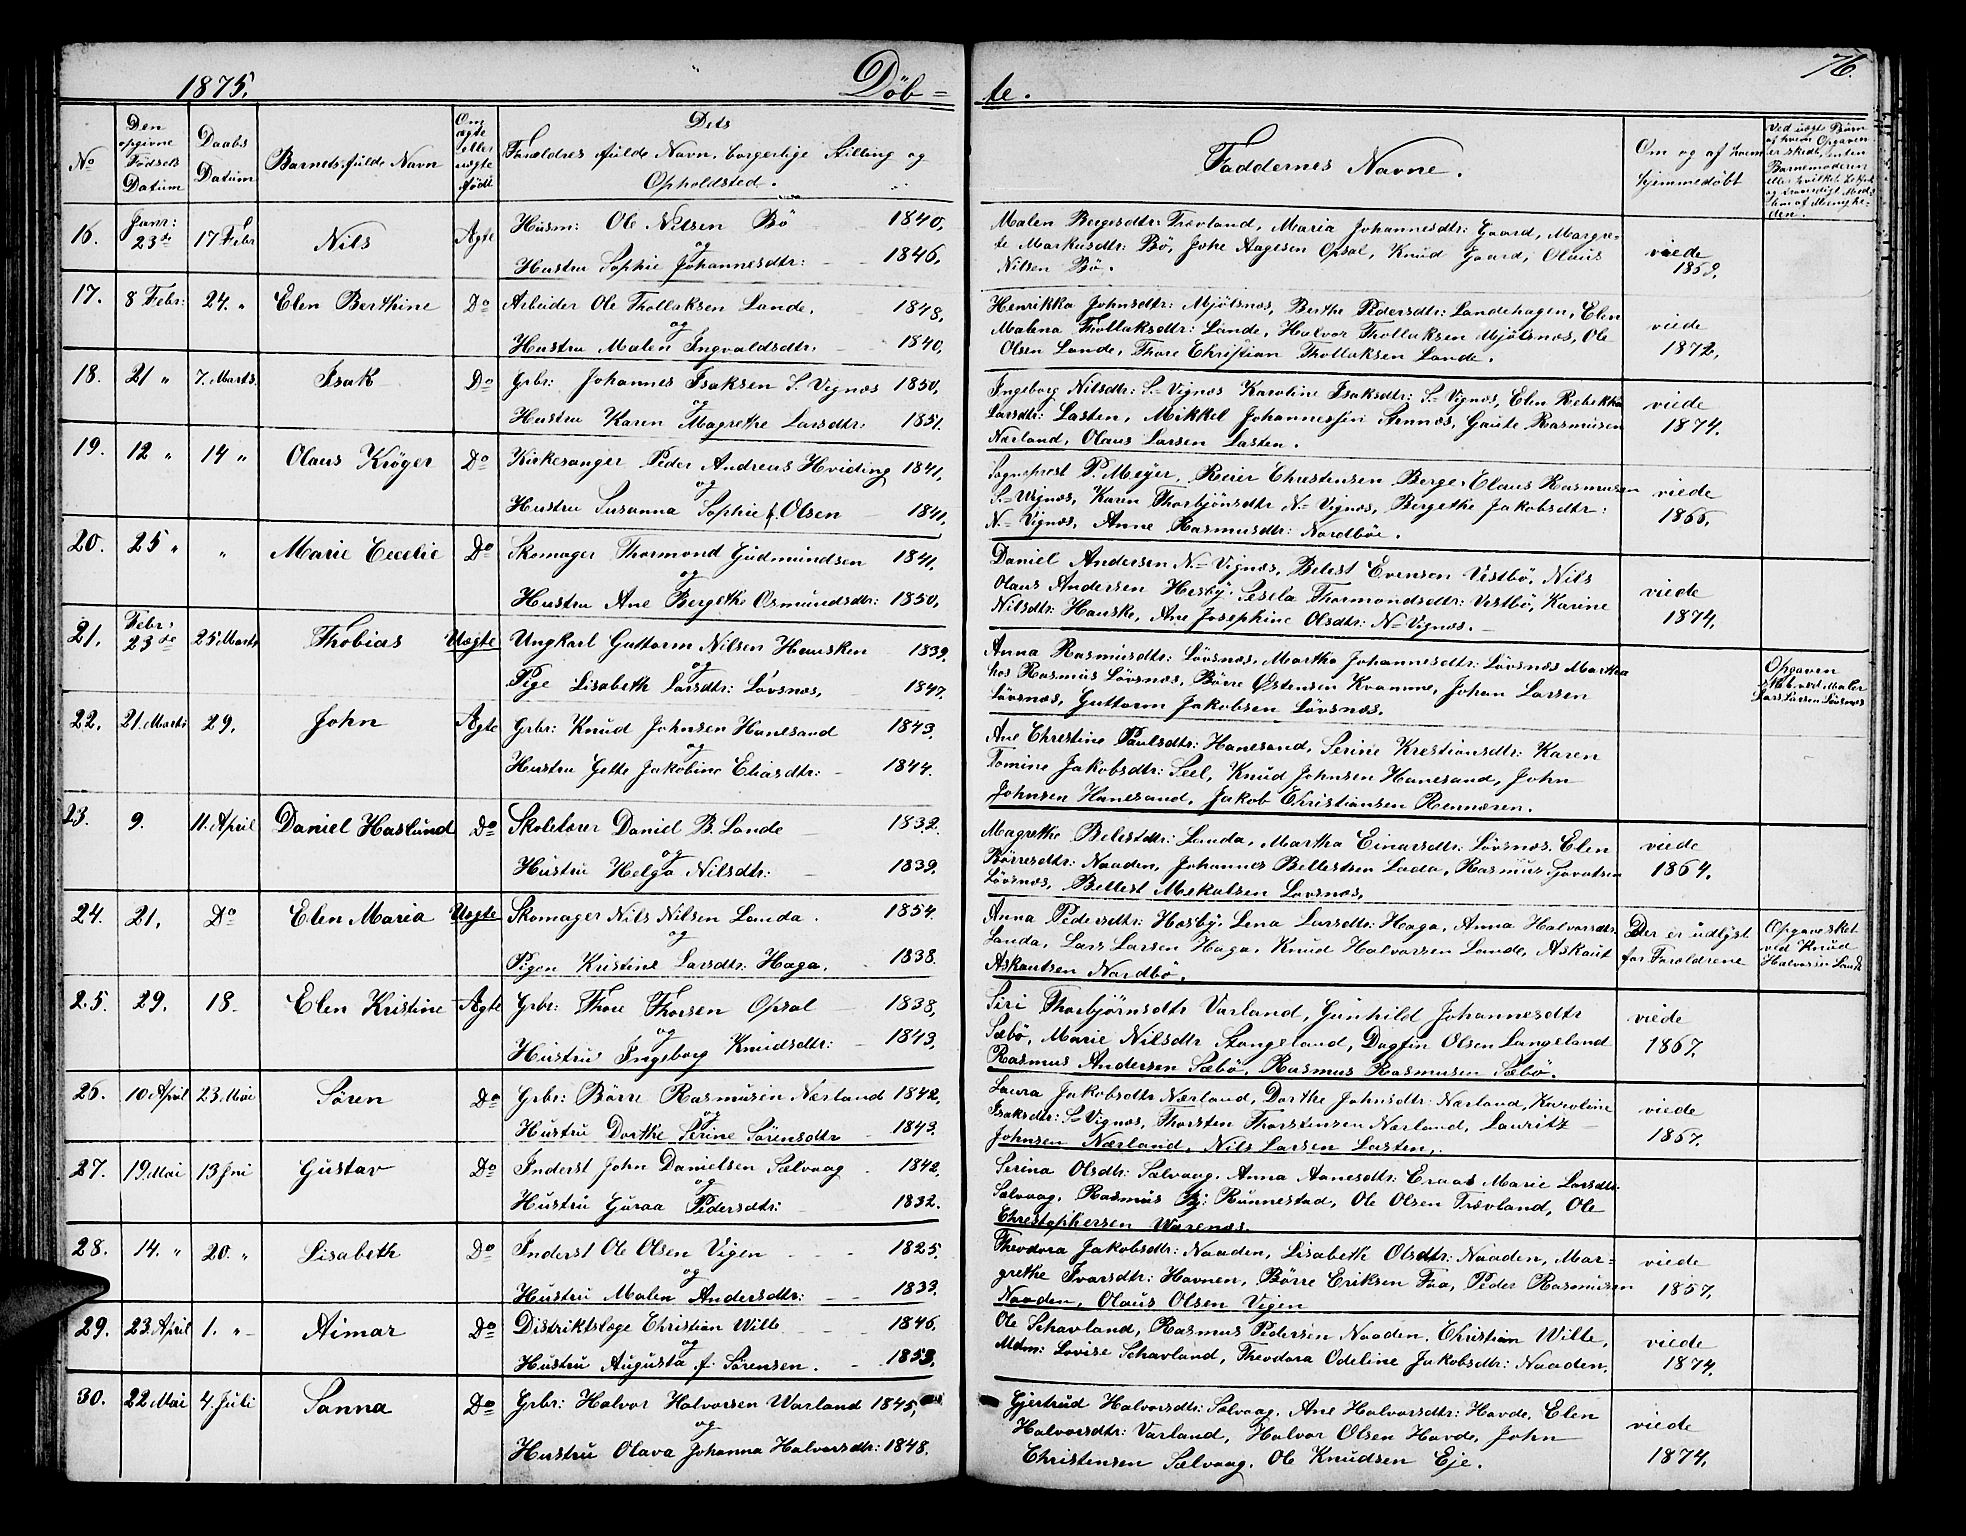 1875. Döb= te. 76.
No
Den opgivne Fødsels Datum
Daabs Datum
Barnets fulde Navn
Om ægte eller uægte født
Dets
Forældres fulde Navn, borgerlige Stilling og
Opholdsted.
Faddernes Navne.
Om og af hvem hjemmedøbt
16. Janr: 23de 17 Febr Nils Ægte Husm: Ole Nilsen Bö 1840,
og
Hustru Sophie Johannesdtr: 1846,
Malen Bergesdtr: Trovland, Maria Johannesdtr: Gaard, Margre-
te Markusdtr: Bö, Johe Aagesen Opsal, Knud Gaard, Olaus
Nilsen Bö.
viede
17. 8 Febr: 24. " Elen Berthine Do Arbeider Ole Thollaksen Lande, 1848,
og
Hustru Malen Ingvaldsdtr: 1840,
Henrikka Johnsdtr: Mjölsnæs, Berthe Pedersdtr: Landehagen, Elen
Malena Thollaksdtr: Lande, Halvor Thollaksen Mjölsnæs, Ole
Olsen Lande, Thore Christian Thollaksen Lande.
viede
1872,
18. 21 " 7. Marts. Isak Do Grbr: Johannes Isaksen S. Vignæs 1850,
og
Hustru Karen Magrethe Larsdtr: 1851.
Ingeborg Nilsdtr: S= Vignæs Karoline Isaksdtr: S= Vignæs, Elen Rebekka
Larsdtr: Lasten, Mikkel Johannessen Aunnæs, Gaute Rasmusen
Nærland, Olaus Larsen Lasten.
viede
1874.
19. 12 " 14 " Olaus Kröger Do Kirkesanger Peder Andreas Hviding 1841,
og
Hustru Susanna Sophie f. Olsen 1841,
Sognepræst P. Meyer, Reier Christensen Berge, Claus Rasmusen
S= Vignæs, Karen Thorbjönsdtr N= Vignæs, Bergethe Jakobsdtr:
N= Vignæs, Anne Rasmusdtr: Nordböe.
viede
1866,
20. 25 " " Marie Cecelie Do Skomager Thormond Gudmundsen 1841.
og
Hustru Ane Bergethe Osmundsdtr: 1850,
Daniel Andersen N= Vignæs, Belest Evensen Vestbö, Nils
Olaus Andersen Hesby, Sesela Thormondsdtr: Vestbö, Karine
Nilsdtr: Hauske, Ane Josephine Olsdtr: N= Vignæs.
viede
1874,
21. Febr: 23de 25 Marts Thobias Uægte Ungkarl Guttorm Nilsen Hausken 1839.
og
Pige Lisabeth Larsdtr: Lövsnæs, 1847.
Anna Rasmusdtr: Lövsnæs, Martha Johannesdtr: Lövsnæs Martha
hos Rasmus Lövsnæs, Börre Östensen Kvamme, Johan Larsen
Lövsnæs, Guttorm Jakobsen Lövsnæs.
Opgaven
Lars Larsen Lövsnæs
22. 21. Marts 29. John Ægte Grbr: Knud Johnsen Hanesand 1843.
og
Hustru Gette Jakobine Eliasdtr: 1844.
Ane Christine Paulsdtr: Hanesand, Serine Krestiansdtr: Karen
Tomine Jakobsdtr: Seel, Knud Johnsen Hanesand, John
Johnsen Hanesand, Jakob Christiansen Rennaren.
23. 9. 11. April Daniel Haslund Do Skolelærer Daniel B. Lande 1832.
og
Hustru Helga Nilsdtr: 1839.
Magrethe Belestdtr: Landa, Martha Einarsdtr: Lövsnæs, Elen
Börresdtr: Naaden, Johannes Bellestsen Lada, Rasmus Govatsen
Lövsnæs, Bellest Mekalsen Lovsnæs,
viede
1864.
24. 21, Do Elen Maria Uægte Skomager Nils Nilsen Landa. 1854.
og
Pigen Kristine Larsdtr: Haga. 1838.
Anna Pedersdtr: Hæsby, Lena Larsdtr: Haga, Anna Halvorsdtr:
Landa, Lars Larsen Haga, Knud Halvorsen Lande, Askaut
Askautsen Nordbö.
Der er udlyst
for Foroldrene
Opgave sket
ved Knud
Halvorsen Lande
25. 29. 18. Elen Kristine Ægte Grbr: Thore Thorsen Opsal 1838,
og
Hustru Ingeborg Knudsdtr: 1843,
Siri Thorbjörnsdtr Varland, Gunhild Johannesdtr
Sæbö, Marie Nilsdtr Stangeland, Dagfin Olsen Langeland
Rasmus Andersen Sæbö, Rasmus Rasmusen Sæbö.
viede
1867,
26. 10 April 23 Mai Sören Do Grbr: Börre Rasmusen Nærland 1842,
og
Hustru Dorthe Serine Sörensdtr 1843.
Laura Jakobsdtr Nærland, Dorthe Johnsdtr: Nærland, Karoline
Isaksdtr: S= Vignæs, Thorsten Thorstensen Nærland, Lauritz
Johnsen Nærland, Nils Larsen Lasten,
viede
1867.
27. 19. Mai 13 Jni Gustav Do Inderst John Danielsen Sælvaag 1842,
og
Hustru Guraa Pedersdtr: 1832.
Serina Olsdtr: Sælvaag, Anna Aanesdtr: Eraas Marie Larsdtr:
Salvaag, Rasmus Runnestad, Ole Olsen Trævland, Ole
Christophersen Warenæs.
28. 14. " 20. " Lisabeth Do Inderst Ole Olsen Vigen 1825.
og
Hustru Malen Andersdtr: 1833.
Theodora Jakobsdtr: Naaden, Lisabeth Olsdtr: Naaden, Mar=
grethe Ivarsdtr: Havnen, Börre Eriksen Faa, Peder Rasmusen
Naaden, Olaus Olsen Vigen
viede
1857.
29. 23. April 1. " Aimar Do Distriktslæge Christian Wille 1846.
og
Hustru Augusta f. Sörensen. 1853.
Ole Schavland, Rasmus Pedersen Naaden, Christian Wille,
Mdm: Lovise Schavland, Theodora Odeline Jakobsdtr: Naaden,
viede
1874.
30. 22 Mai 4. Juli Sanna Do Grbr: Halvor Halvorsen Warland 1845,
og
Hustru Olava Johanna Halvorsdtr: 1848.
Gjertrud Halvorsdtr: Sælvaag, Ane Halvorsdtr: Havde, Elen
Halvorsdtr: Varland, Halvor Olsen Havde, John
Christensen Sælvaag, Ole Knudsen Eje.
viede
1874,